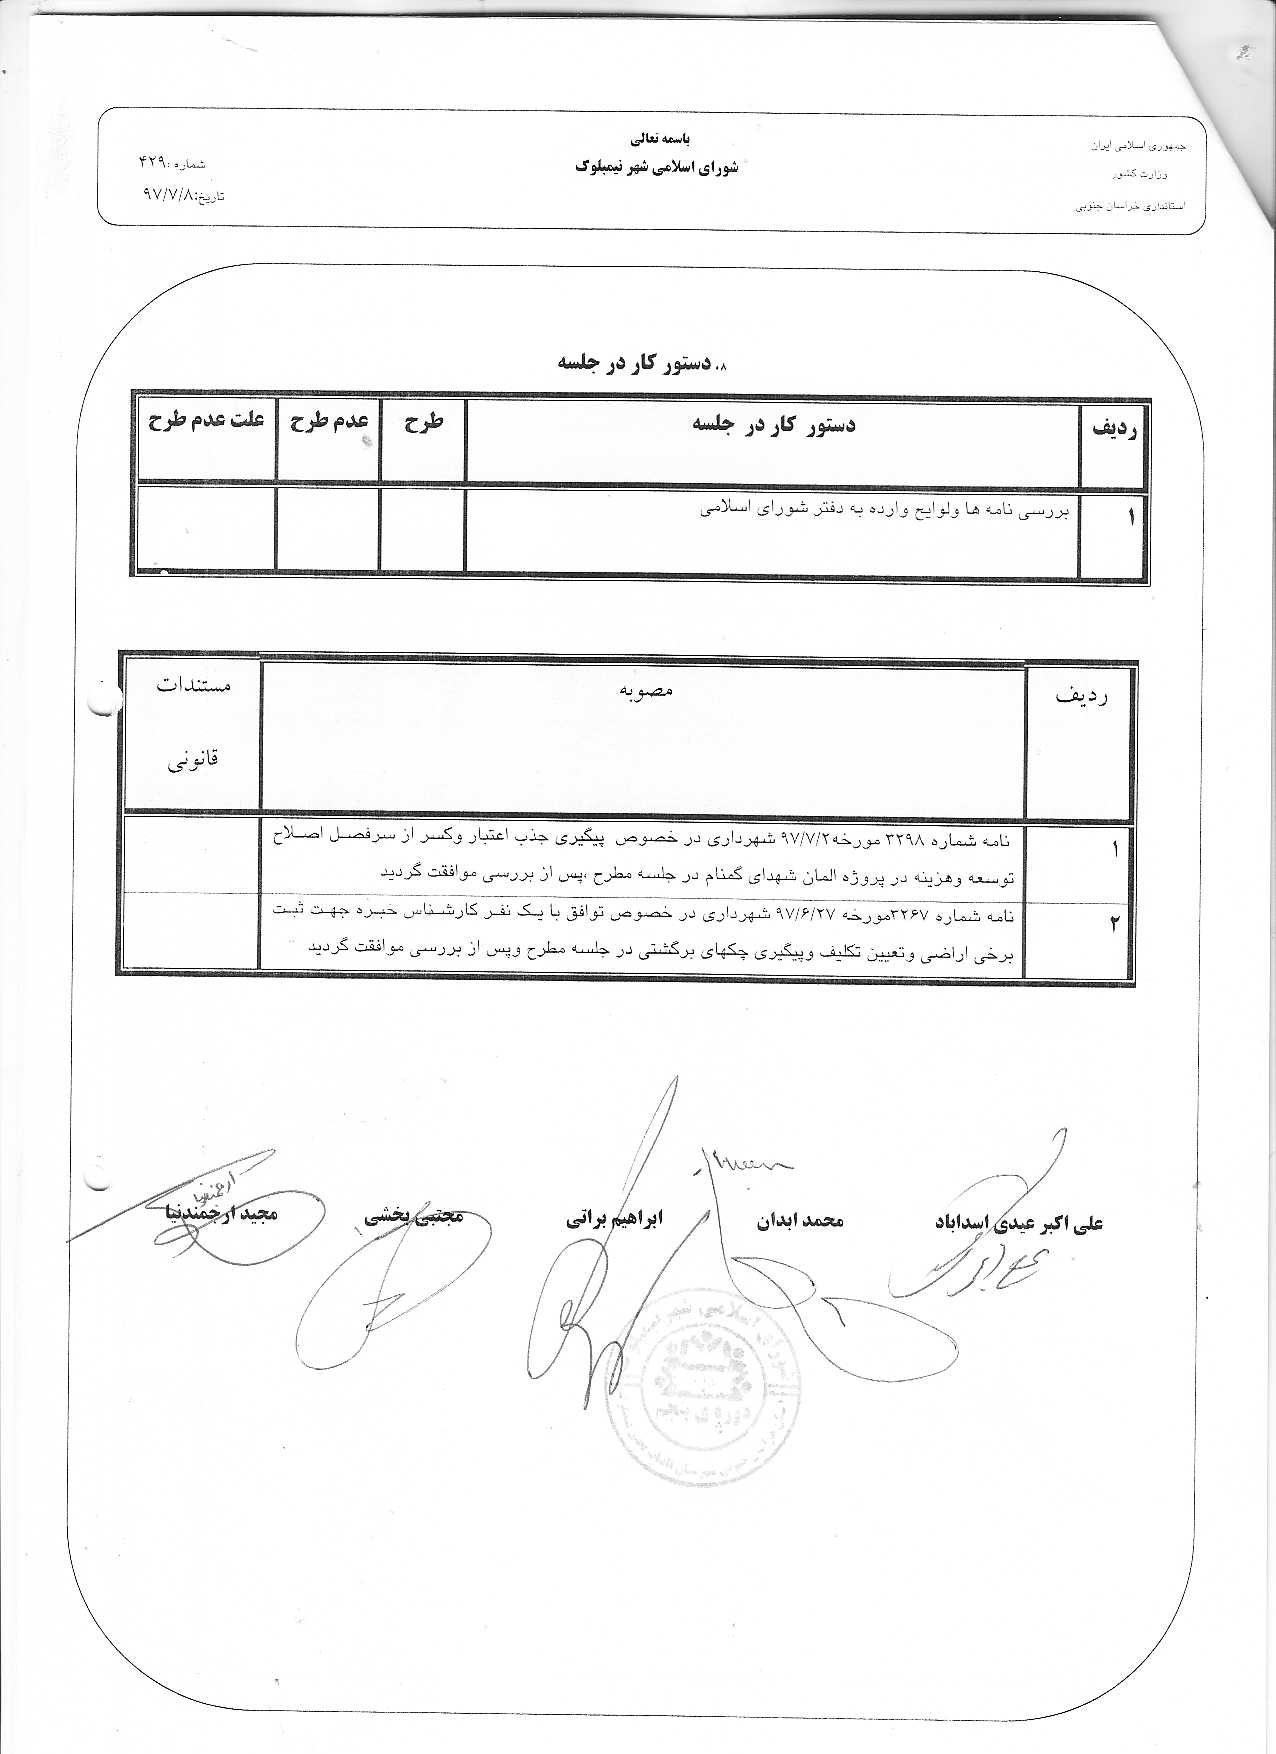 باسمه تعالی
شورای اسلامی شهر نیمبلوک
جمهوری اسلامی ایران
وزارت کشور
استانداری خراسان جنوبی
شماره :۴۲۹
تاریخ:۹۷/۷/۸
۸. دستور کار در جلسه
ردیف دستور کار در جلسه طرح عدم طرح علت عدم طرح
۱ بررسی نامه ها ولوایح وارده به دفتر شورای اسلامی
ردیف مصوبه مستندات
قانونی
۱ نامه شماره ۳۲۹۸ مورخه۹۷/۷/۲ شهرداری در خصوص پیگیری جذب اعتبار وکسر از سرفصل اصلاح
توسعه وهزینه در پروژه المان شهدای گمنام در جلسه مطرح ،پس از بررسی موافقت گردید
۲ نامه شماره ۳۲۶۷مورخه ۹۷/۶/۲۷ شهرداری در خصوص توافق با یک نفر کارشناس خبره جهت ثبت
برخی اراضی وتعیین تکلیف وپیگیری چکهای برگشتی در جلسه مطرح وپس از بررسی موافقت گردید
علی اکبر عیدی اسداباد محمد ابدان ابراهیم براتی مجتبی بخشی مجید ارجمندنیا
ارجمندنیا
شورای اسلامی شهر
دوره ی پنجم